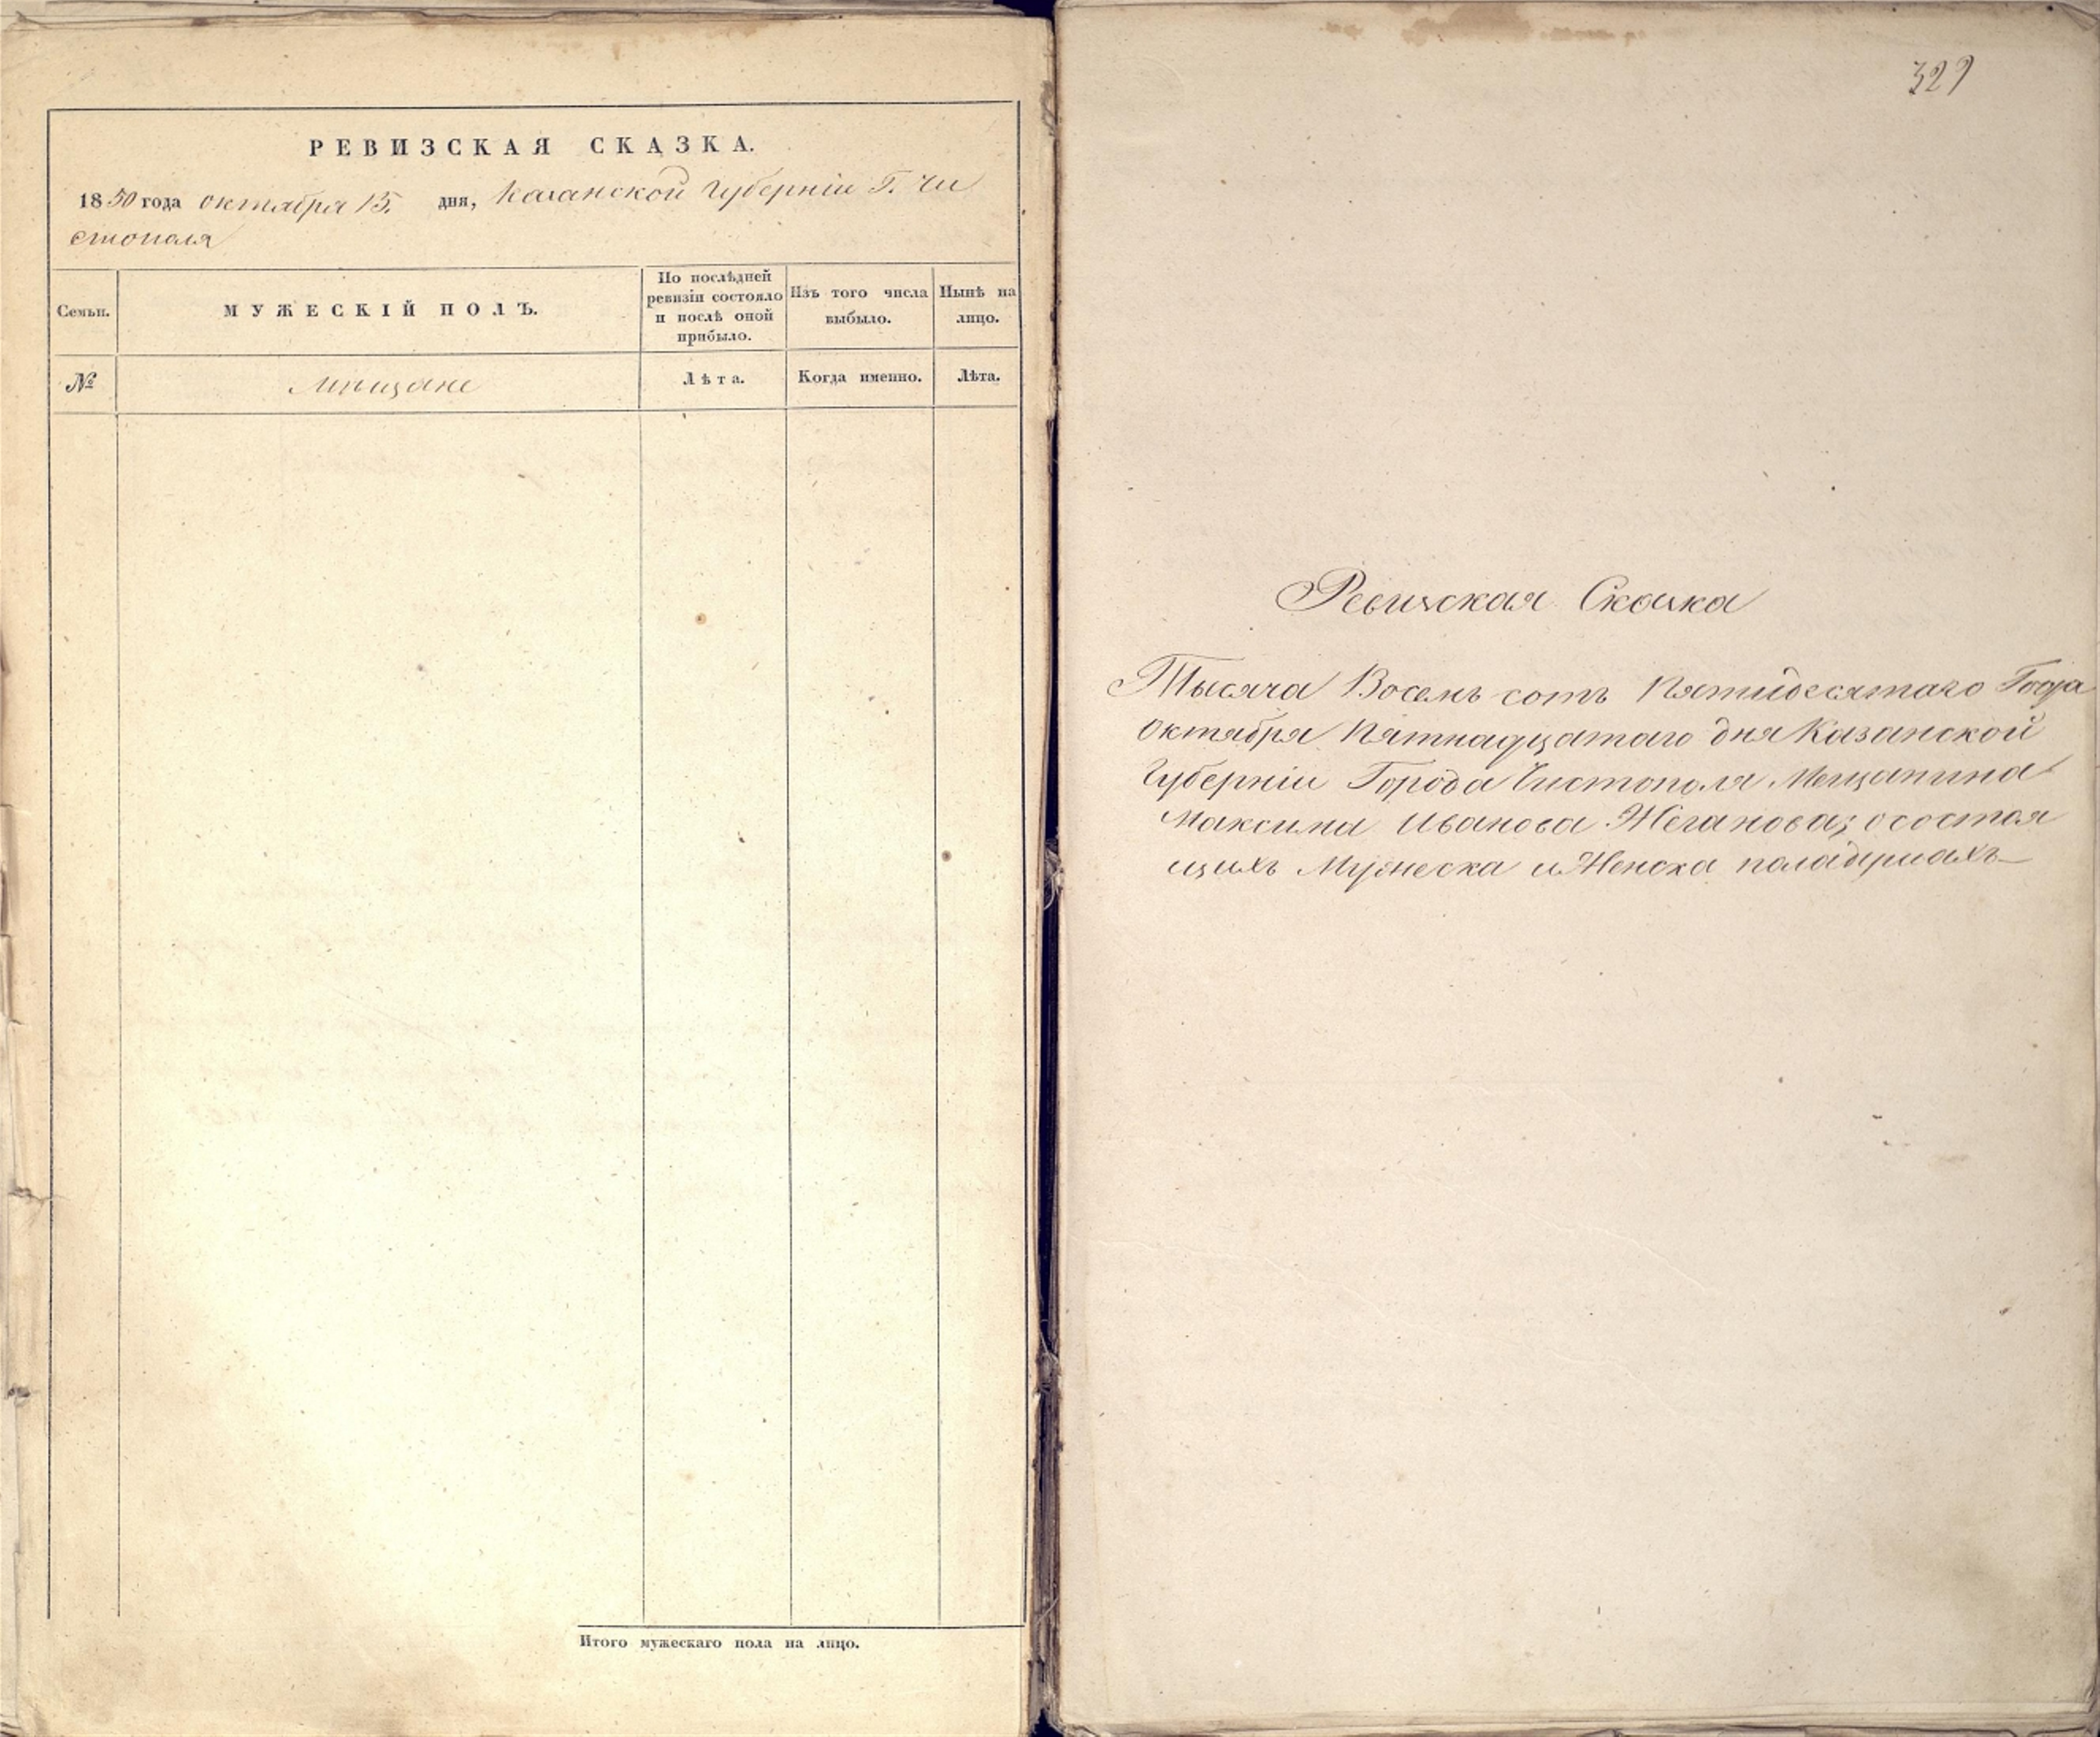 РЕВИЗСКАЯ СКАЗКА.
1850 года октября 15. дня, Казанской Губерніи Г. Чи
стополя
Семьи.
МУЖЕСКІЙ ПОЛЪ.
По послѣдней
ревизіи состояло
и послѣ оной
прибыло.
Изъ того числа
выбыло.
Нынѣ на
лицо.
№
мѣщане
Лѣта.
Когда именно.
Лѣта.
Итого мужескаго пола на лицо.
Ревизская Сказка
Тысяча Восемь сотъ Пятидесятаго Года
Октября Пятнадцатаго дня Казанской
Губерніи Города Чистополя Мещанина
Максима Иванова Жеганова; о состоя
щихъ Мужеска и Женска пола душахъ